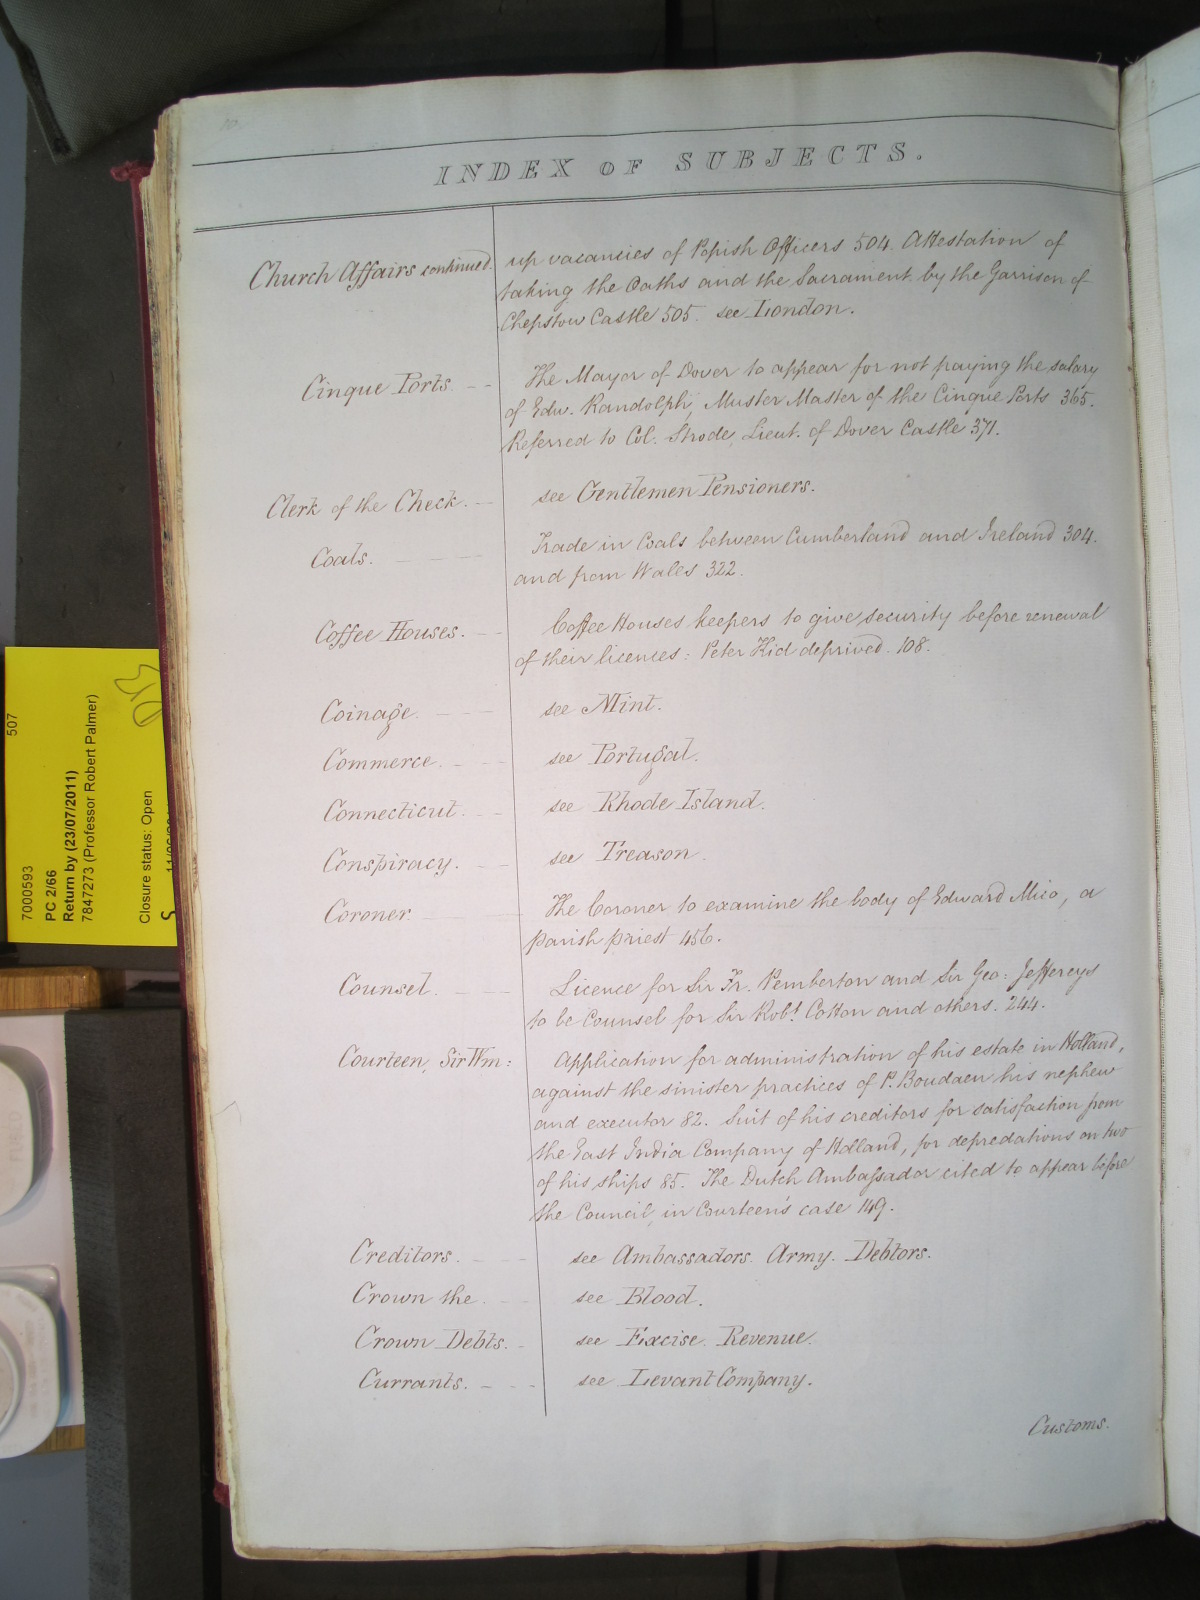 10.
INDEX OF SUBJECTS.
Church Affairs continued. up vacancies of Popish Officers 504. Attestation of
taking the Oaths and the Sacrament by the Garrison of
Chepstow Castle 505. see London.
Cinque Ports. The Mayor of Dover to appear for not paying the salary
of Edw. Randolph, Muster Master of the Cinque Ports 365.
Referred to Col. Strode, Lieut. of Dover Castle 371.
Clerk of the Check. see Gentlemen Pensioners.
Coals. Trade in Coals between Cumberland and Ireland 304.
and from Wales 322.
Coffee Houses. Coffee Houses keepers to give security before renewal
of their licences: Peter Kid deprived. 108.
Coinage see Mint.
Commerce. see Portugal.
Connecticut. see Rhode Island.
Conspiracy. see Treason.
Coroner. The Coroner to examine the body of Edward Mico, a
parish priest 456.
Counsel. Licence for Sir Fr. Pemberton and Sir Geo: Jeffereys
to be Counsel for Sir Robt. Cotton and others. 244.
Courteen, Sir Wm: Application for administration of his estate in Holland,
against the sinister practices of P. Boudaen his nephew
and executor 82. Suit of his creditors for satisfaction from
the East India Company of Holland, for depredations on two
of his ships 85. The Dutch Ambassador cited to appear before
the Council, in Courteen's case 149.
Creditors. see Ambassadors. Army. Debtors.
Crown the. see Blood.
Crown Debts. see Excise. Revenue.
Currants. see Levant Company.
Customs.
507
7000593
PC 2/66
Return by (23/07/2011)
7847273 (Professor Robert Palmer)
Closure status: Open